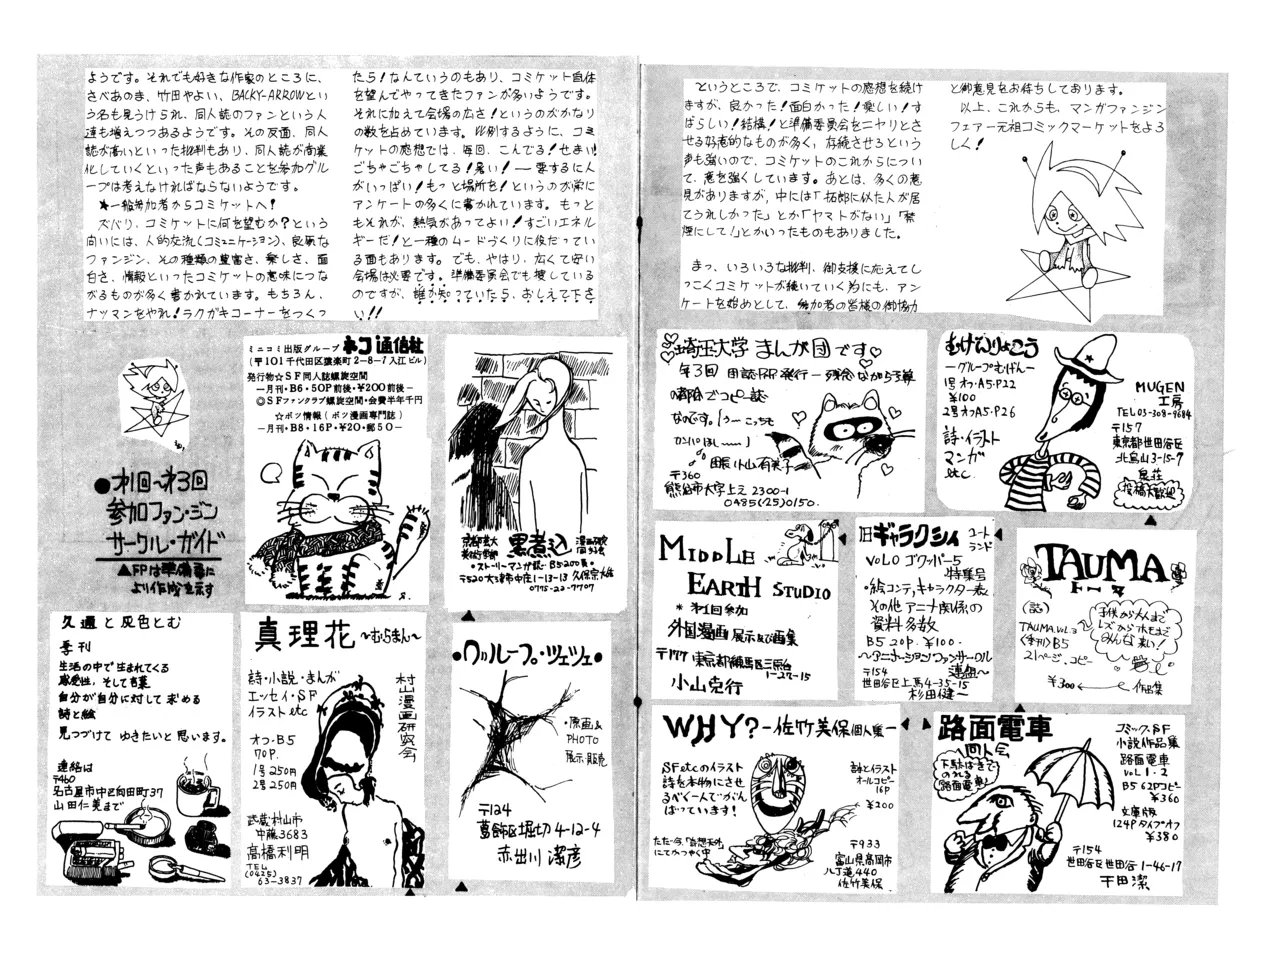 ようです。それでも好きな作家のところに、
さべあのま、竹田やよい、BACKY-ARROWとい
う名も見うけられ、同人誌のファンという人
達も増えつつあるようです。その反面、同人
誌が高いといった批判もあり、同人誌が商業
化していくといった声もあることを参加グル
ープは考えなければならないようです。
★一般参加者からコミケットへ!
ズバリ、コミケットに何を望むか?という
向いには、人的交流(コミュニケーション)、良質な
ファンジン、その種類の豊富さ、楽しさ、面
白さ、情報といったコミケットの意味につな
がるものが多く書かれています。もちろん、
ナッマンをやれ!ラクガキコーナーをつくっ
たら!なんていうのもあり、コミケット自体
を望んでやってきたファンが多いようです。
それに加えて会場の広さ!というのがかなり
の数を占めています。比例するように、コミ
ケットの感想では、毎回、こんでる!せまい!
ごちゃごちゃしてる!暑い!――要するに人
がいっぱい!もっと場所を!というのが常に
アンケートの多くに書かれています。もっと
もそれが、熱気があってよい!すごいエネル
ギーだ!と一種のムードづくりに役だってい
る面もあります。でも、やはり、広くて安い
会場は必要です。準備委員会でも捜している
のですが、誰か知っていたら、おしえて下さ
い!!
というところで、コミケットの感想を続け
ますが、良かった!面白かった!楽しい!す
ばらしい!結構!と準備委員会をニヤリとさ
せる好意的なものが多く、存続させろという
声も強いので、コミケットのこれからについ
て、意を強くしています。あとは、多くの意
見がありますが、中には「拓郎に似た人が居
てうれしかった」とか「ヤマトがない」「禁
煙にして!」とかいったものもありました。
まっ、いろいろな批判、御支援に応えてし
つこくコミケットが続いていく為にも、アン
ケートを始めとして、参加者の皆様の御協力
と御意見をお待ちしております。
以上、これからも、マンガファンジン
フェアー元祖コミックマーケットをよろ
しく!
●才1回〜才3回
参加ファン・ジン
サークル・ガイド
▲FPは準備会に
より作成を示す
ミニコミ出版グループ ネコ通信社
(〒101千代田区猿楽町2-8-7入江ビル)
発行物☆SF同人誌螺旋空間
―月刊・B6・50P前後・¥200前後―
◎SFファンクラブ螺旋空間・会費半年千円
☆ボツ情報(ボツ漫画専門誌)
―月刊・B8・16P・¥20・郵50―
京都芸大
美術学部
黒煮込
漫画研究
同好会
・ストーリーマンガ誌・B5 200頁・
〒520大津市中庄1-13-13 久保宗雄
0775-22-7707
久遠と灰色とむ
季刊
生活の中で生まれてくる
感受性、そして言葉
自分が自分に対して求める
詩と絵
見つづけて ゆきたいと思います。
連絡は
〒460
名古屋市中区向田町37
山田仁美まで
真理花 〜むらまん〜
村山漫画研究会
詩・小説・まんが
エッセイ・SF
イラストetc
オフ・B5
70P.
1号250円
2号250円
武蔵村山市
中藤3683
高橋利明
TEL
(0425)
63-3837
●グループ・ツェツェ●
・原画&
PHOTO
展示・販売
〒124
葛飾区堀切4-12-4
赤出川 潔彦
埼玉大学まんが団です
第3回 団誌RP発行―残念ながら予算
の都合でコピー誌
なのです。(う〜こっちも
カンパほし〜〜)
団長 小山有美子
〒360
熊谷市大字上之2300-1
0485(25)0150.
むげんりょこう
―グループむげん―
1号オフ・A5・P22
¥100
2号オフA5・P26
詩・イラスト
マンガ
etc
MUGEN
工房
TEL03-308-9684
〒157
東京都世田谷区
北烏山3-15-7
泉荘
投稿大歓迎
MIDDLE
EARTH STUDIO
*才1回参加
外国漫画展示及び画集
〒177 東京都練馬区三原台
1-27-15
小山克行
旧ギャラクシィ コートランド
VOL0 ゴワッパー5
特集号
・絵コンテ,キャラクター表
その他アニメ関係の
資料多数
B5 20P. ¥100.
〜アニメーションファンサークル
連組〜
〒154
世田谷区上馬4-35-15
杉田健一
TAUMA
トーマ
(誌)
TAUMA.VOL.3
〈季刊〉B5
21ページ.コピー
¥300 作品集
子供から大人まで
レズからホモまで
みんな来い!
WHY?―佐竹美保個人集―
SFetcのイラスト
詩を本物にさせ
るべく一人でがん
ばっています!
詩とイラスト
オールコピー
16P
¥200
ただ今、「奇想天外」
にてかつやく中
〒933
富山県高岡市
八丁道440
佐竹美保
路面電車
同人会
下駄ばきで
のれる
路面電車♪
コミック・SF
小説作品集
路面電車
VOL 1・2
B5 62Pコピー
¥360
文庫版
124Pタイプオフ
¥380
〒154
世田谷区世田谷1-46-17
干田潔